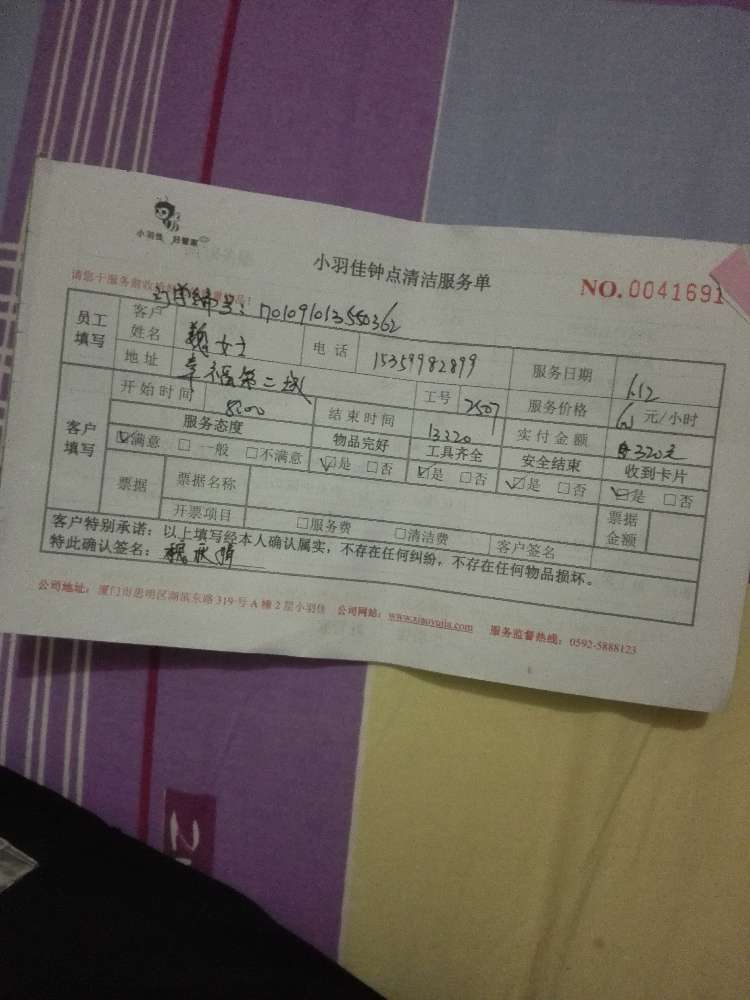 小羽佳 好管家
小羽佳钟点清洁服务单
NO. 0041691
请您于服务前收
订单编号：701091013550362
员工填写 客户姓名 魏女士 电话 15359982899 服务日期 1.12
地址 幸福第二城 工号 2507 服务价格 元/小时
客户填写 开始时间 8:00 结束时间 13:20 实付金额 320元
服务态度 物品完好 工具齐全 安全结束 收到卡片
☑满意 □一般 □不满意 ☑是 □否 ☑是 □否 ☑是 □否 ☑是 □否
票据 票据名称 票据金额
开票项目 □服务费 □清洁费 客户签名
客户特别承诺：以上填写经本人确认属实，不存在任何纠纷，不存在任何物品损坏。
特此确认签名：魏
公司地址：厦门市思明区湖滨东路319号A栋2层小羽佳 公司网站：www.xiaoyujia.com 服务监督热线：0592-5888123